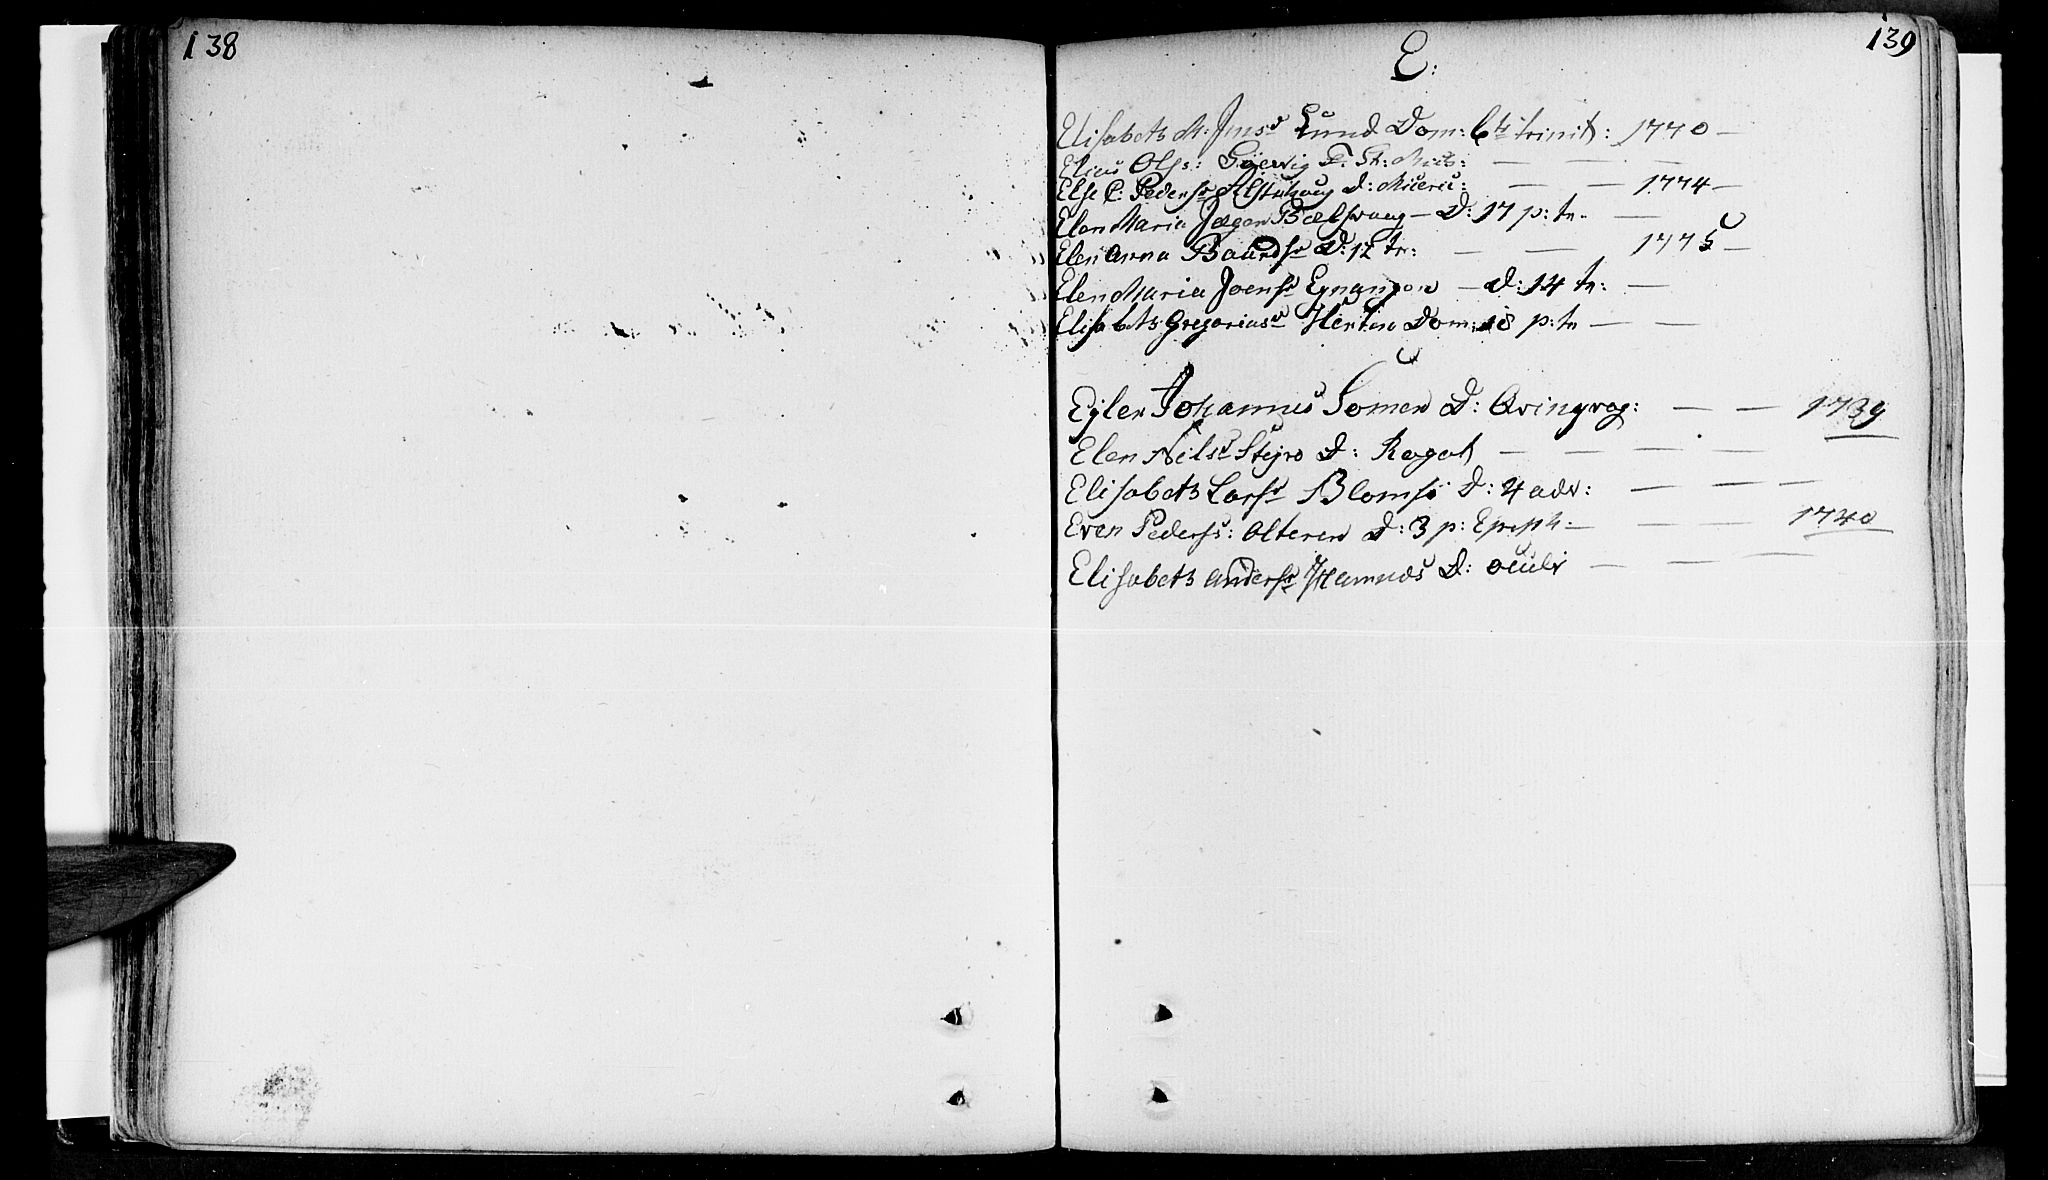 138
139
E:
Elisabeth M: Jensd Lund Dom: 6 trinit: 1770 –
Elias Ols: F. St: Mich: — — —
Else C: Pedersd Alstahoug D: Miseric: — — 1774 –
Elen Maria Jæger Bælsvaag – D: 17 p: tr. —
Elen Anna Baardsd D: 12 tr: — — 1775 –
Elen Maria Joensd – D: 14 tr: —
Elisabeth Gregoriusd Dom: 18 p: tr — —
Eyler Johannes Somen D: Qvinqvag: — — 1739
Elen Nilsd Stejro D: Rogat — — — —
Elisabeth Larsd Blomsö D: 4 adv: — — —
Even Peders: Olteren D: 3 p: Epiph: — — — 1740
Elisabeth Andersd Hamnes D: oculi — — —